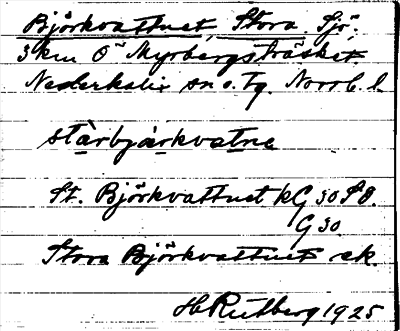 Björkvattnet, Stora Sjö.
3 km Ö Myrbergsträsket
Nederkalix sn o. tg. Norrb. l.
stàrbjàrkvatne
St. Björkvattnet kG 30 SO.
G 30
Stora Björkvattnet ek.
H Rutberg 1925